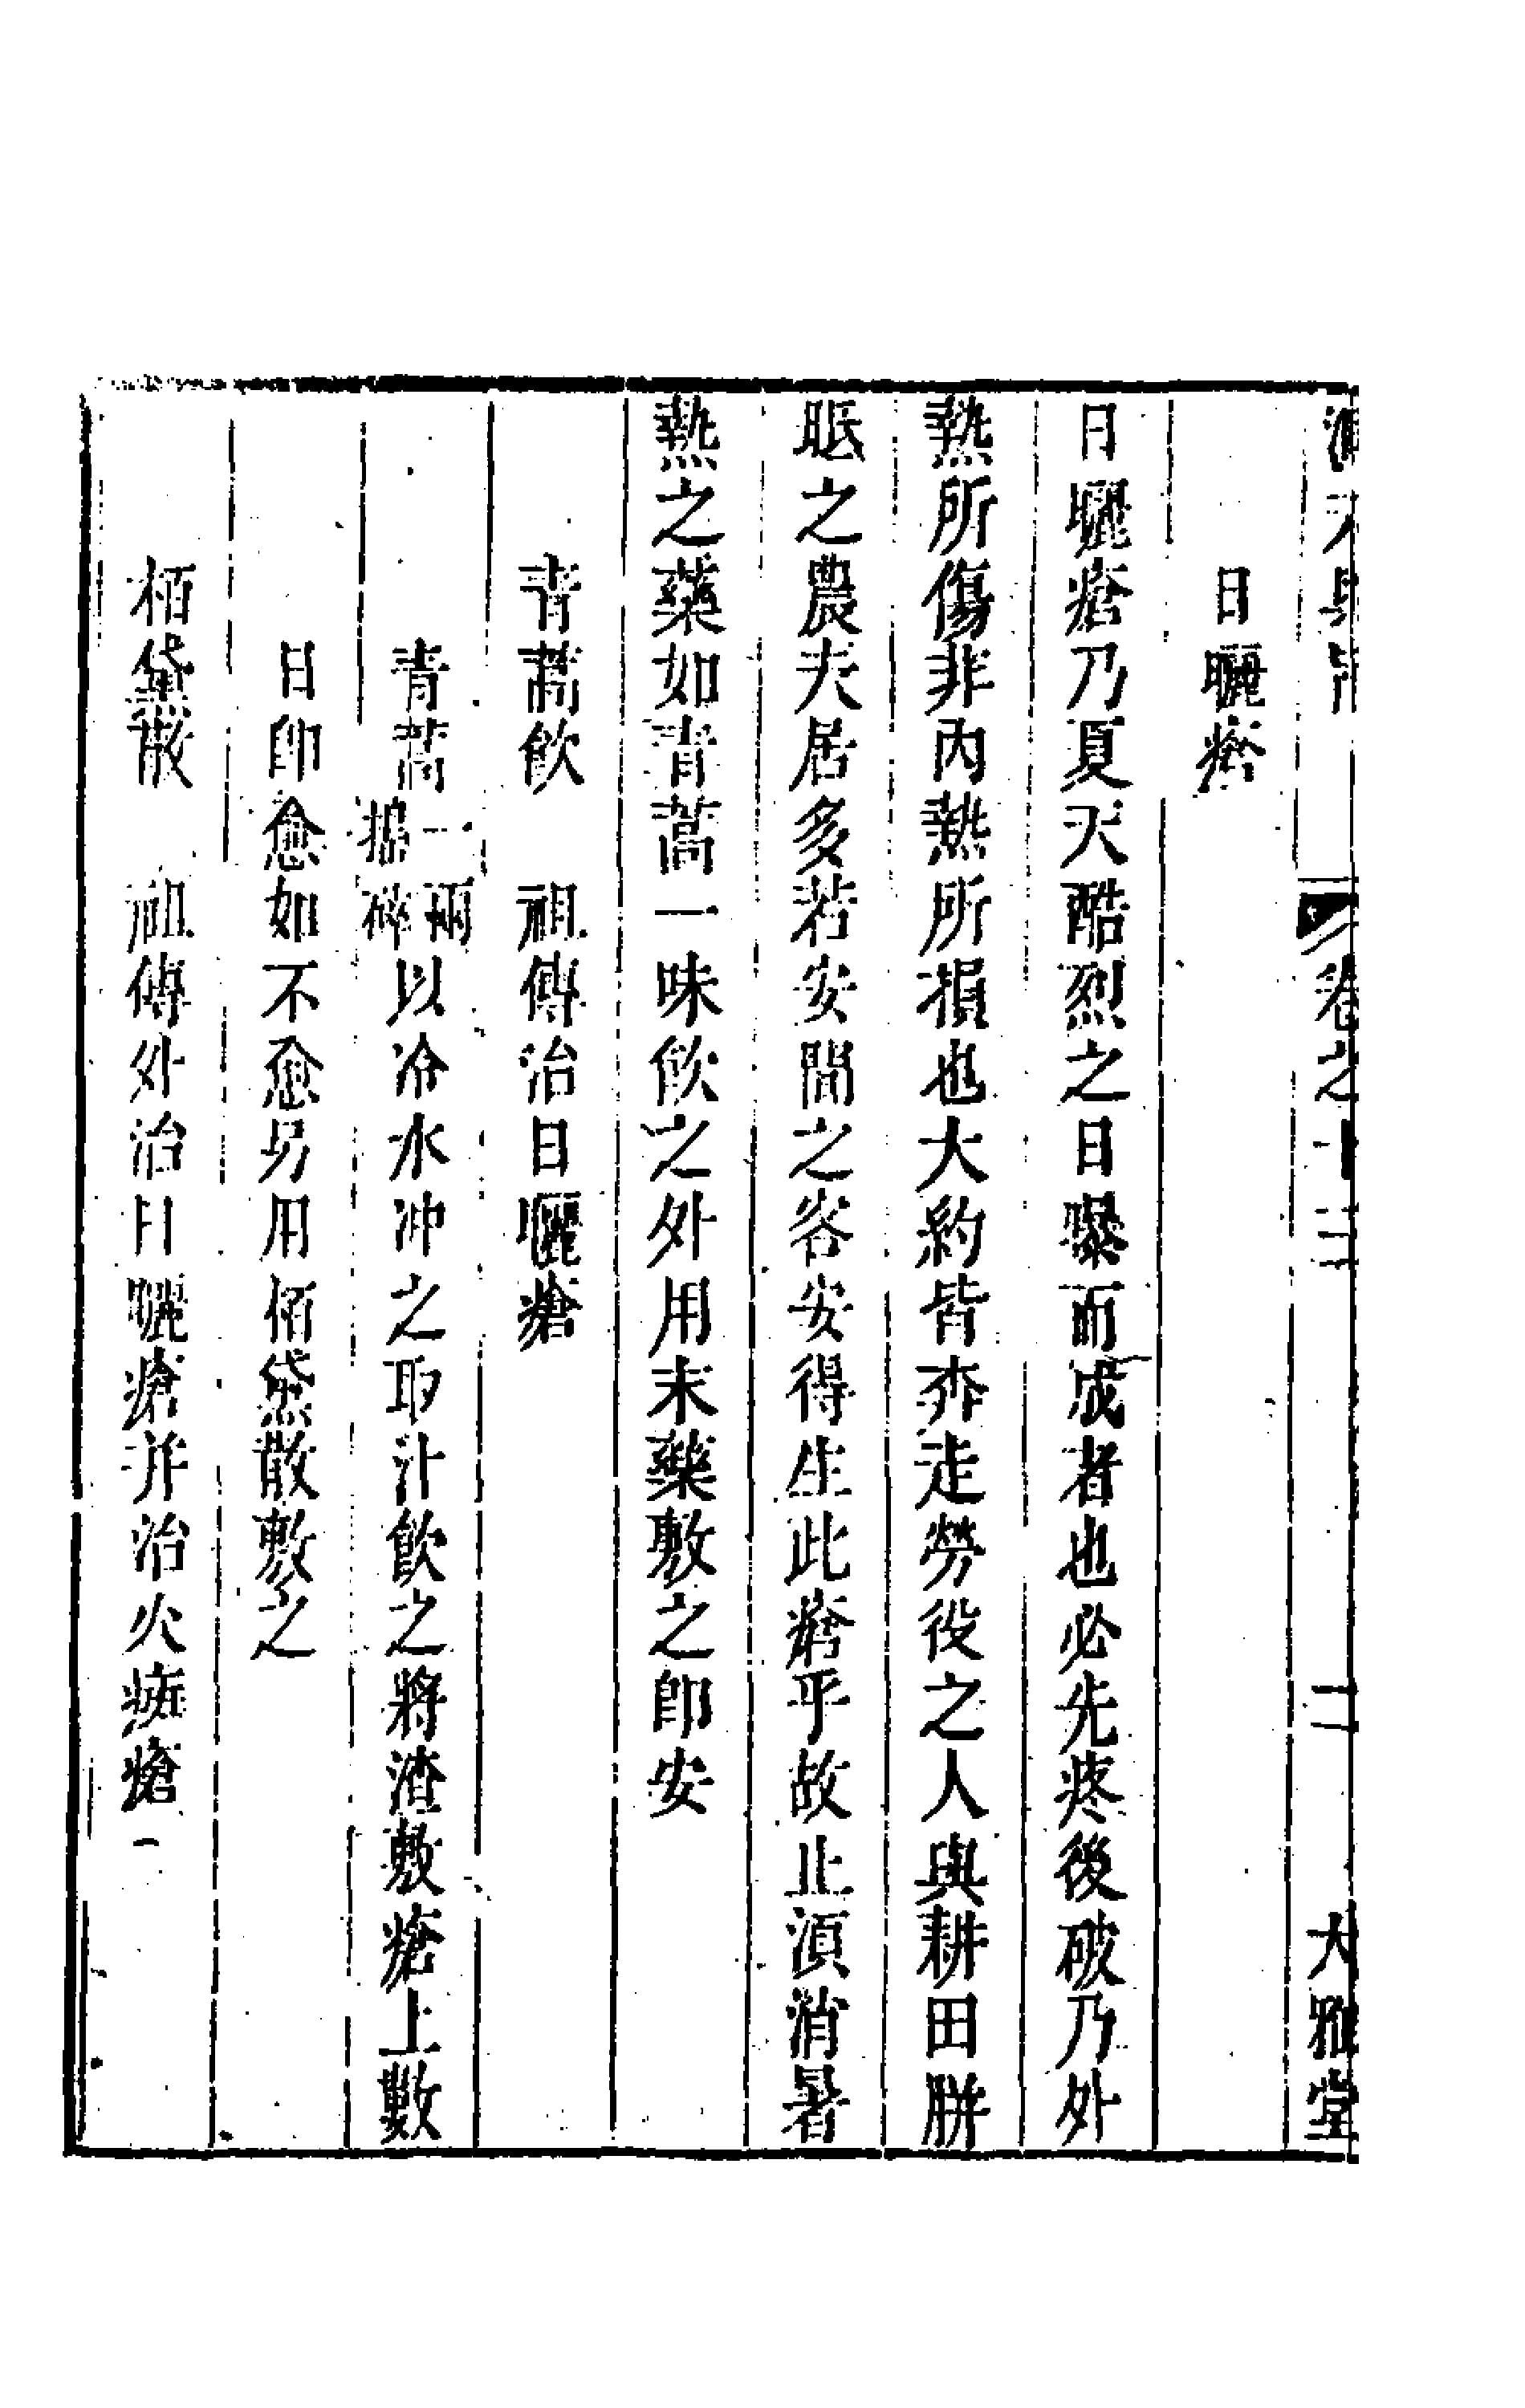 洞天奧旨 卷之十三 二 大雅堂
日曬瘡
日曬瘡乃夏天酷烈之日曝而成者也必先疼後破乃外
熱所傷非內熱所損也大約皆奔走勞役之人與耕田胼
胝之農夫居多若安閒之客安得生此瘡乎故止須消暑
熱之藥如青蒿一味飲之外用末藥敷之卽安
青蒿飲 祖傳治日曬瘡
青蒿一兩搗碎以冷水冲之取汁飲之將渣敷瘡上數
日卽愈如不愈另用栢黛散敷之
栢黛散 祖傳外治日曬瘡并治火瘢瘡